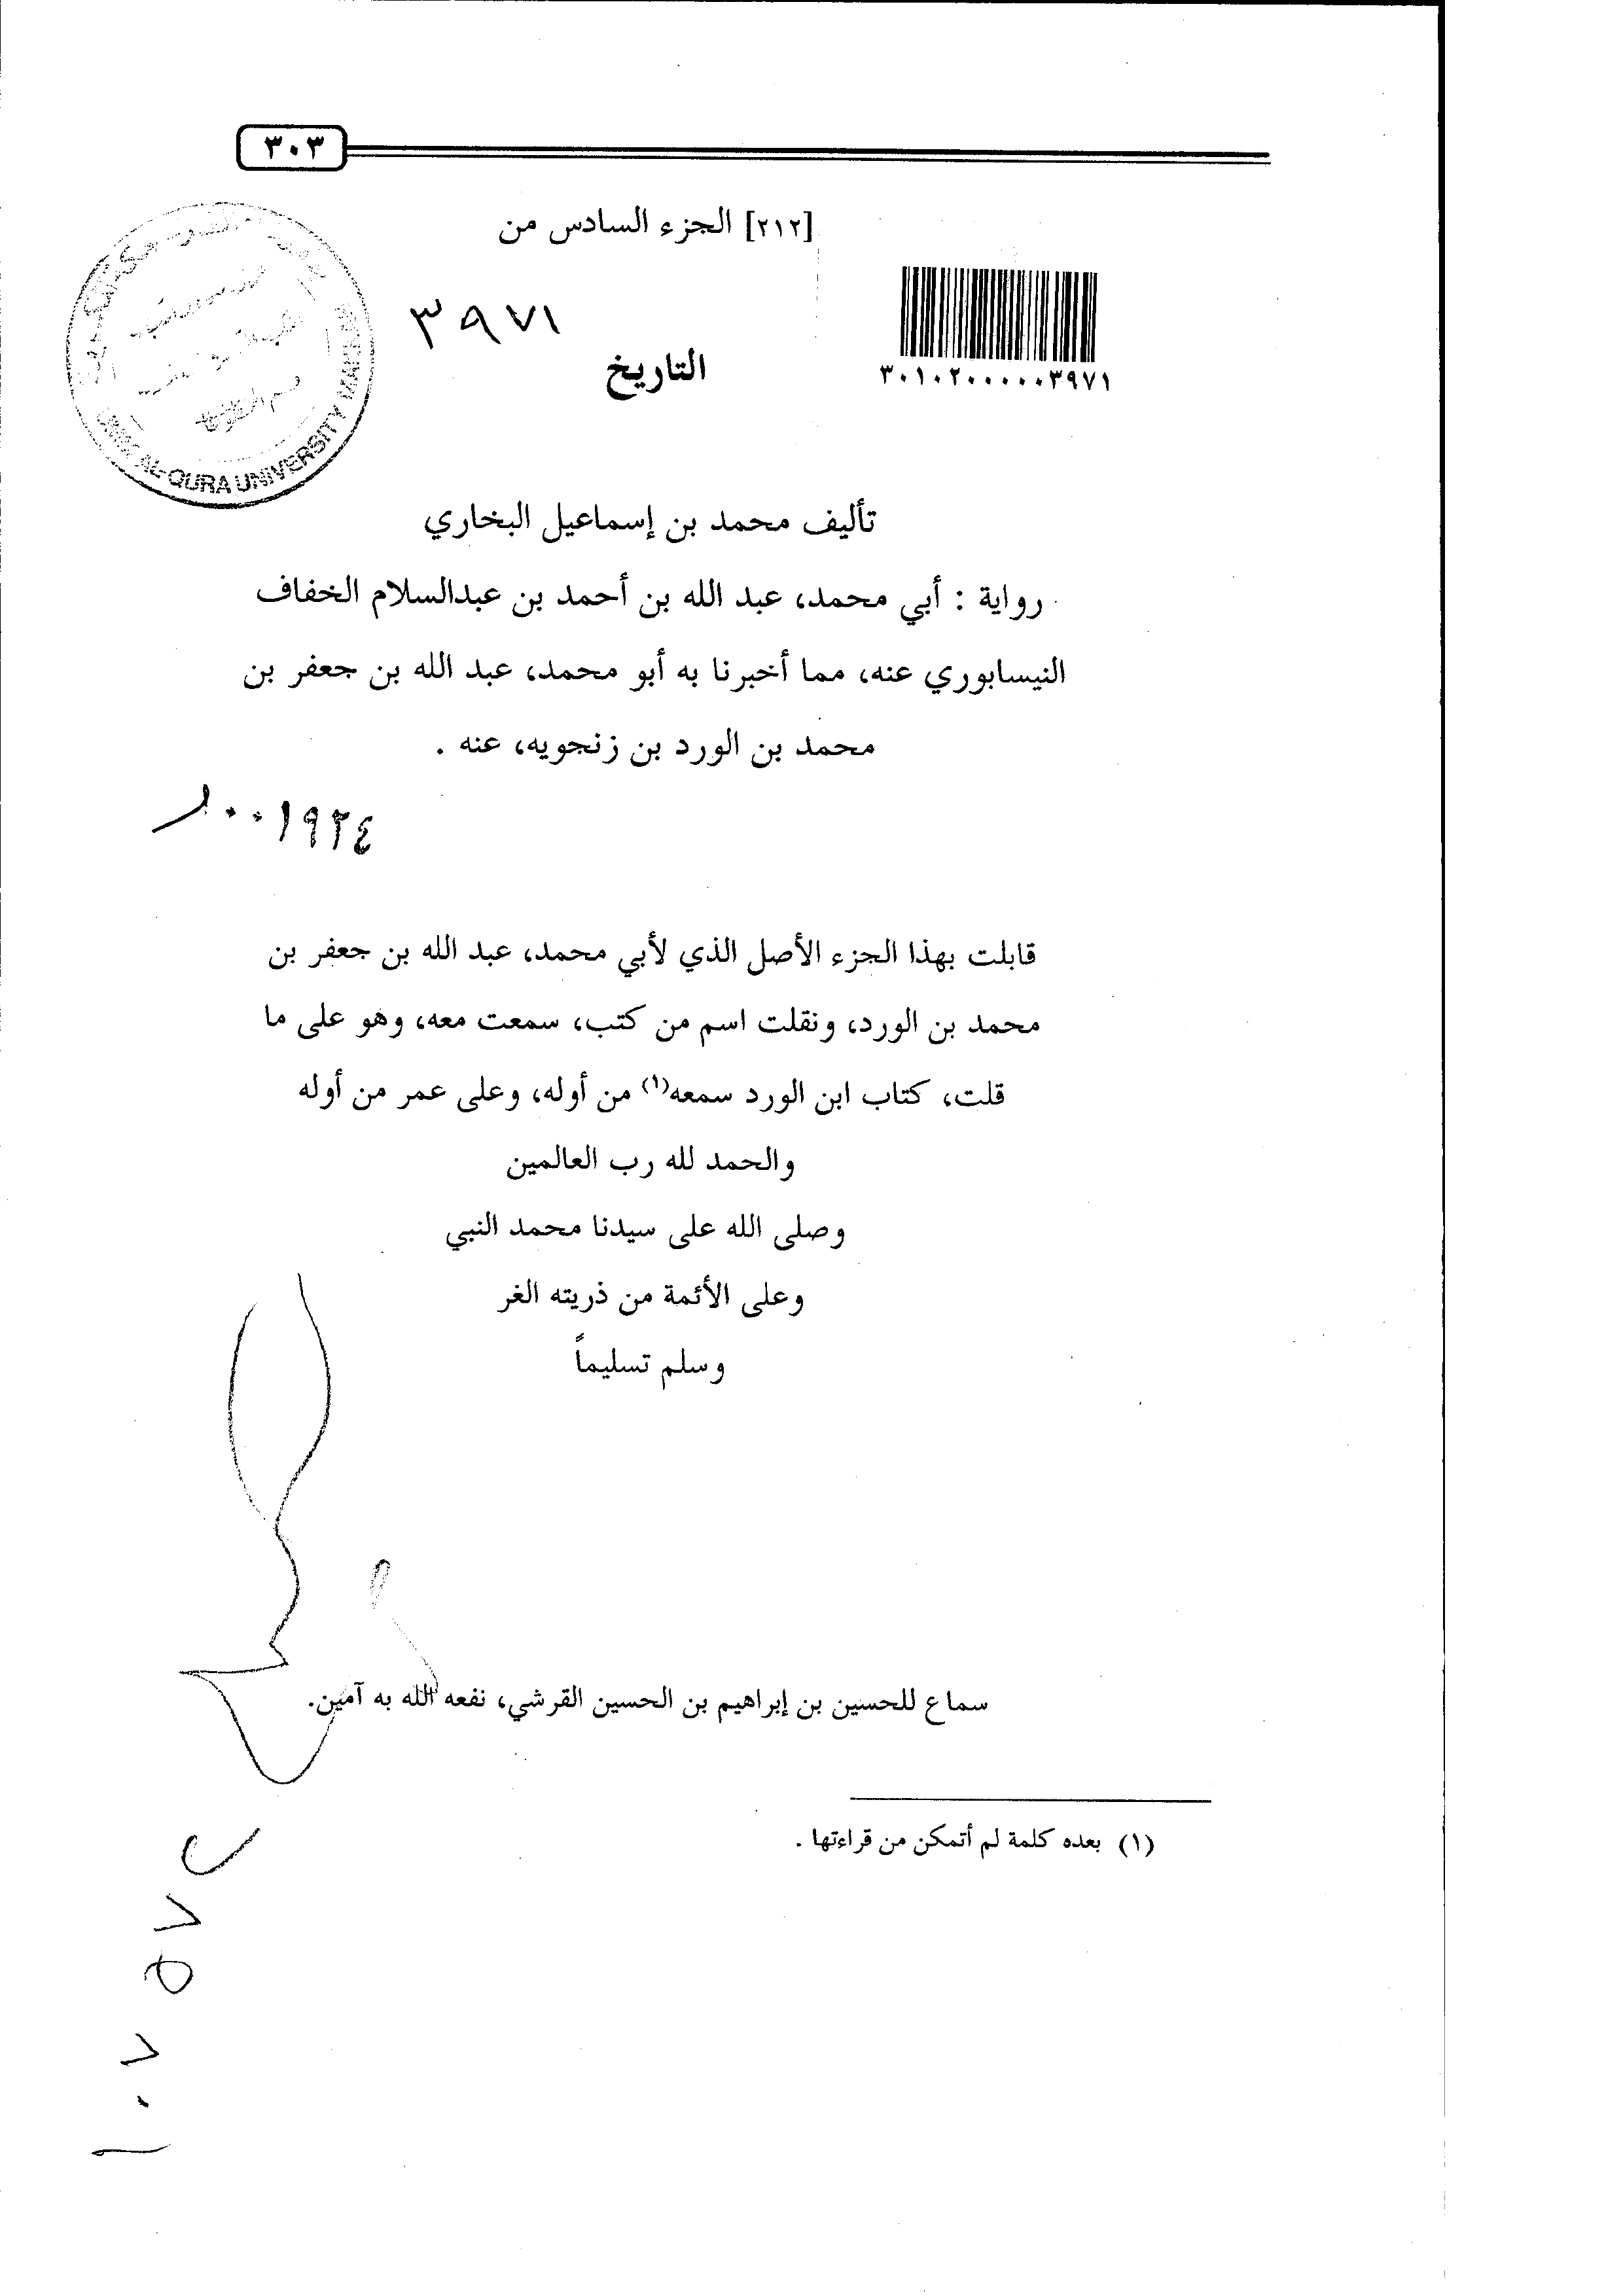 ٣٠٣
[٢١٢] الجزء السادس من
٣٩٧١
التاريخ
٣٠١٠٢٠٠٠٠٠٣٩٧١
UMM AL-QURA UNIVERSITY MAKKAH
تأليف محمد بن إسماعيل البخاري
رواية : أبي محمد، عبد الله بن أحمد بن عبدالسلام الخفاف
النيسابوري عنه، مما أخبرنا به أبو محمد، عبد الله بن جعفر بن
محمد بن الورد بن زنجويه، عنه .
قابلت بهذا الجزء الأصل الذي لأبي محمد، عبد الله بن جعفر بن
محمد بن الورد، ونقلت اسم من كتب، سمعت معه، وهو على ما
قلت، كتاب ابن الورد سمعه(١) من أوله، وعلى عمر من أوله
والحمد لله رب العالمين
وصلى الله على سيدنا محمد النبي
وعلى الأئمة من ذريته الغر
وسلم تسليماً
سماع للحسين بن إبراهيم بن الحسين القرشي، نفعه الله به آمين.
(١) بعده كلمة لم أتمكن من قراءتها .